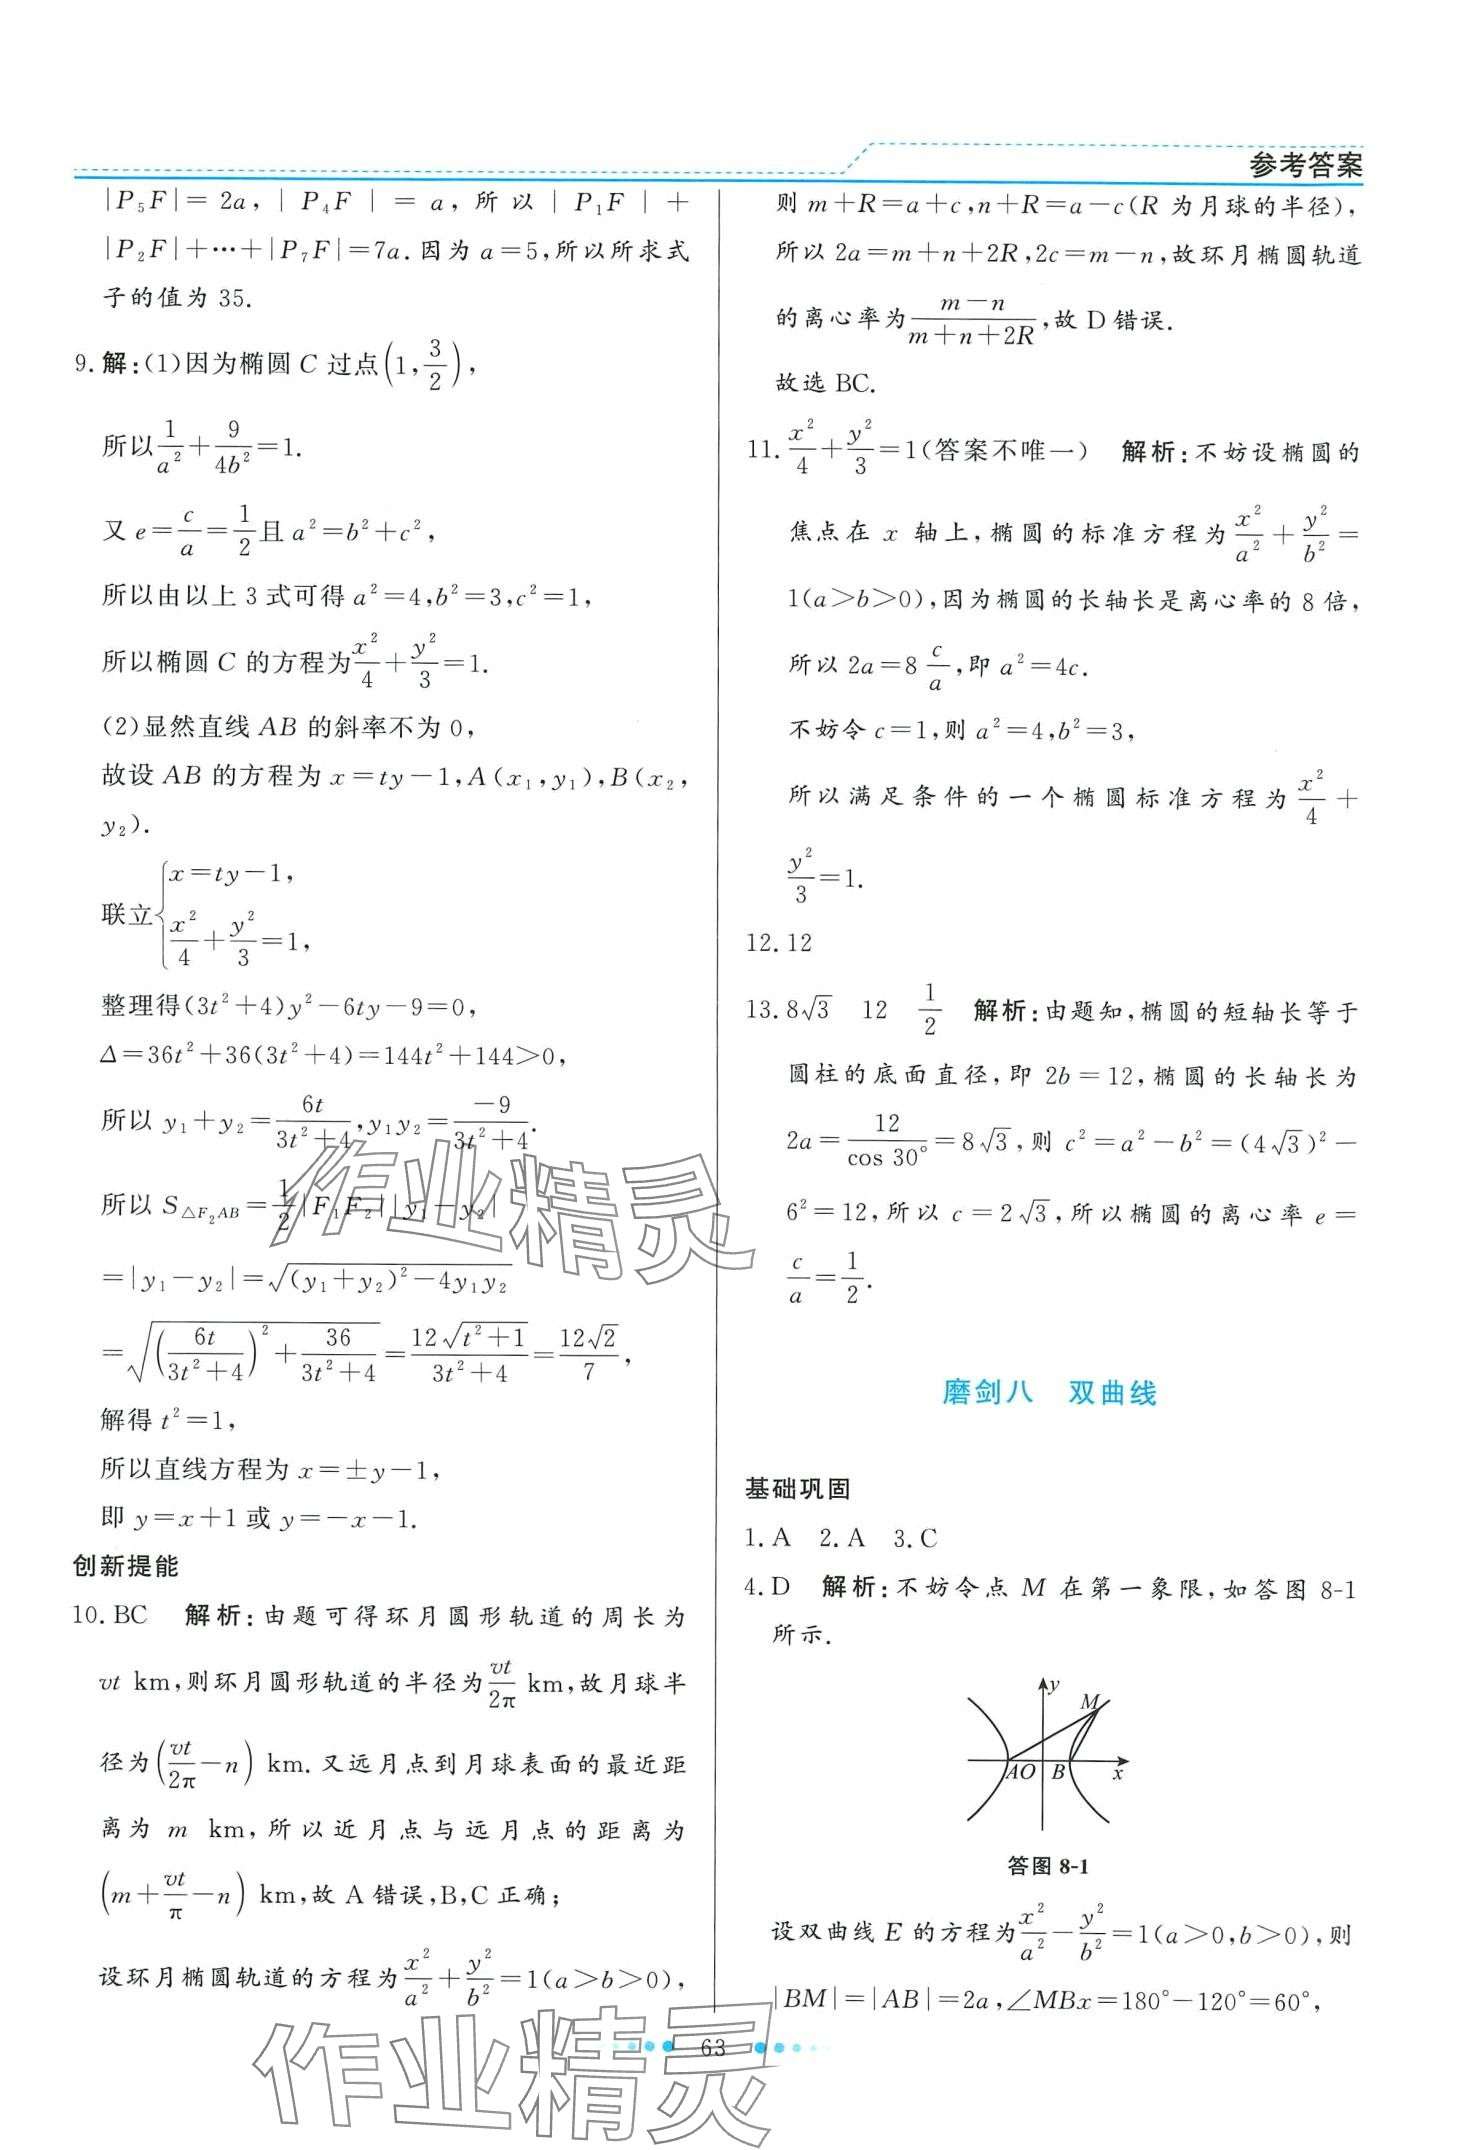 参考答案
|P₅F|=2a,|P₄F|=a,所以|P₁F|+
|P₂F|+⋯+|P₇F|=7a.因为a=5,所以所求式
子的值为35.
9.解:(1)因为椭圆C过点(1,3/2),
所以1/a²+9/4b²=1.
又e=c/a=1/2且a²=b²+c²,
所以由以上3式可得a²=4,b²=3,c²=1,
所以椭圆C的方程为x²/4+y²/3=1.
(2)显然直线AB的斜率不为0,
故设AB的方程为x=ty-1,A(x₁,y₁),B(x₂,
y₂).
联立{x=ty-1,
x²/4+y²/3=1,
整理得(3t²+4)y²-6ty-9=0,
Δ=36t²+36(3t²+4)=144t²+144>0,
所以y₁+y₂=6t/(3t²+4),y₁y₂=-9/(3t²+4).
所以S△F₂AB=1/2|F₁F₂||y₁-y₂|
=|y₁-y₂|=√((y₁+y₂)²-4y₁y₂)
=√((6t/(3t²+4))²+36/(3t²+4))=12√(t²+1)/(3t²+4)=12√2/7,
解得t²=1,
所以直线方程为x=±y-1,
即y=x+1或y=-x-1.
创新提能
10.BC 解析:由题可得环月圆形轨道的周长为
vt km,则环月圆形轨道的半径为vt/2π km,故月球半
径为(vt/2π-n) km.又远月点到月球表面的最近距
离为m km,所以近月点与远月点的距离为
(m+vt/π-n) km,故A错误,B,C正确;
设环月椭圆轨道的方程为x²/a²+y²/b²=1(a>b>0),
则m+R=a+c,n+R=a-c(R为月球的半径),
所以2a=m+n+2R,2c=m-n,故环月椭圆轨道
的离心率为(m-n)/(m+n+2R),故D错误.
故选BC.
11.x²/4+y²/3=1(答案不唯一) 解析:不妨设椭圆的
焦点在x轴上,椭圆的标准方程为x²/a²+y²/b²=
1(a>b>0),因为椭圆的长轴长是离心率的8倍,
所以2a=8c/a,即a²=4c.
不妨令c=1,则a²=4,b²=3,
所以满足条件的一个椭圆标准方程为x²/4+
y²/3=1.
12.12
13.8√3 12 1/2 解析:由题知,椭圆的短轴长等于
圆柱的底面直径,即2b=12,椭圆的长轴长为
2a=12/cos 30°=8√3,则c²=a²-b²=(4√3)²-
6²=12,所以c=2√3,所以椭圆的离心率e=
c/a=1/2.
磨剑八 双曲线
基础巩固
1.A 2.A 3.C
4.D 解析:不妨令点M在第一象限,如答图8-1
所示.
y
M
A O B x
答图8-1
设双曲线E的方程为x²/a²-y²/b²=1(a>0,b>0),则
|BM|=|AB|=2a,∠MBx=180°-120°=60°,
63
作业精灵
作业精灵